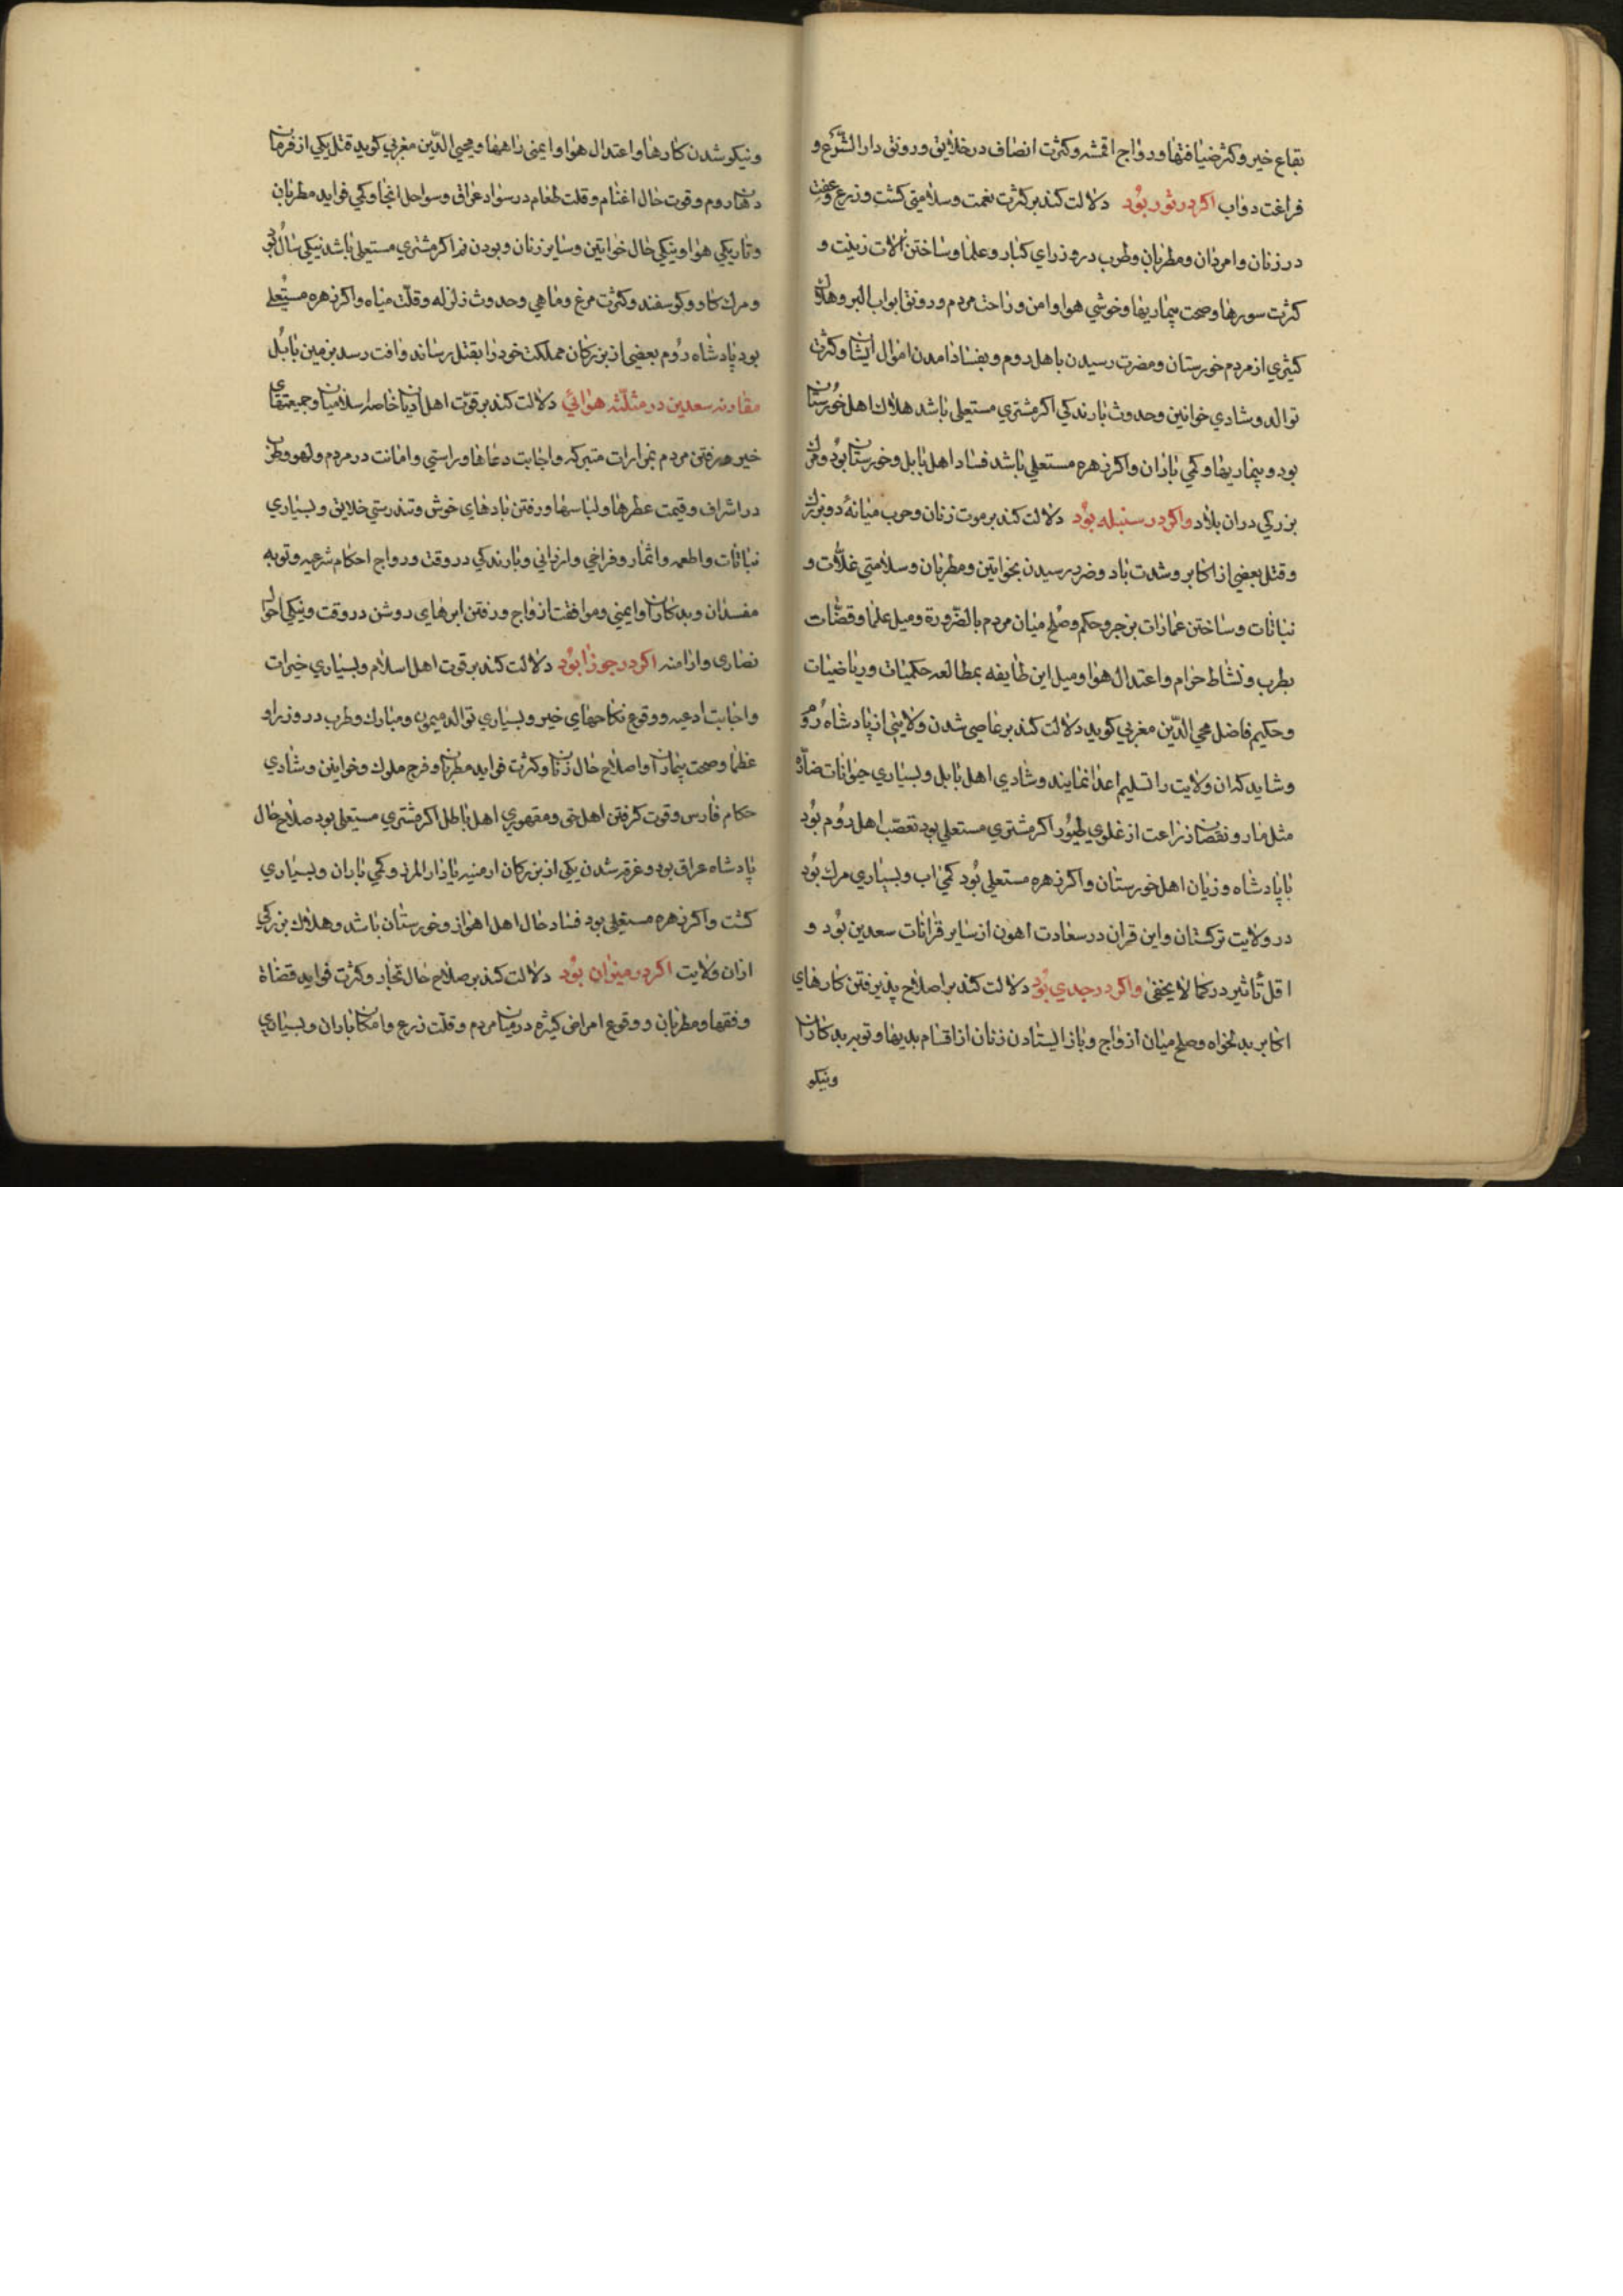 بقاع خیر و کثر ضیافتها و رواج اقمشه و کثرت انصاف در خلایق و رونق دار الشرع و
فراغت دواب اکر در ثور بود دلالت کند بر کثرت نعمت و سلامتی کشت و زرع و عفت
در زنان و امردان و مطربان و طرب در وزرای کبار و علما و ساختن الات زینت و
کثرت سورها و صحت بیماریها و خوشی هوا و امن و راحت مردم و رونق ابواب البر و هلاک
کثیری از مردم خورستان و مضرت رسیدن باهل روم و بفساد امدن اموال ایشان و کثرت
توالد و شادی خواتین و حدوث بارندکی اکر مشتری مستعلی باشد هلاک اهل خورستان
بود و بیماریها و کمی باران و اکر زهره مستعلی باشد فساد اهل بابل و خورستان بود و مرک
بزرکی دران بلاد و اکر در سنبله بود دلالت کند بر موت زنان و حرب میانهٔ دو بزرک
و قتل بعضی از اکابر و شدت باد و ضرر رسیدن بخواتین و مطربان و سلامتی غلات و
نباتات و ساختن عمارات بزجر و حکم و صلح میان مردم بالضرورة و میل علما و قضات
بطرب و نشاط حرام و اعتدال هوا و میل این طایفه بمطالعه حکمیات و ریاضیات
و حکیم فاضل محی الدین مغربی کوید دلالت کند بر عاصی شدن ولایتی از پادشاه روم
و شاید که ان ولایت را تسلیم اعدا نمایند و شادی اهل بابل و بسیاری حیوانات ضاره
مثل مار و نقصان زراعت از غلوی طیور اکر مشتری مستعلی بود تعصب اهل روم بود
با پادشاه و زیان اهل خورستان و اکر زهره مستعلی بود کمی اب و بسیاری مرک بود
در ولایت ترکستان و این قران در سعادت اهون از سایر قرانات سعدین بود و
اقل تأثیر در کما لا یخفی و اکر در جدی بود دلالت کند بر اصلاح پذیرفتن کارهای
اکابر بدلخواه و صلح میان ازواج و باز ایستادن زنان از اقسام بدیها و توبه بدکاران
و نیکو
و نیکو شدن کارها و اعتدال هوا و ایمنی راهها و محیی الدین مغربی کوید قتل یکی از فرمان
دهان روم و قوت حال اغنام و قلت طعام در سواد عراق و سواحل انجا و کمی فواید مطربان
و تاریکی هوا و نیکی حال خواتین و سایر زنان و بودن نم اکر مشتری مستعلی باشد نیکی سال بود
و مرک کاو و کوسفند و کثرت مرغ و ماهی و حدوث زلزله و قلت میاه و اکر زهره مستعلی
بود پادشاه روم بعضی از بزرکان مملکت خود را بقتل رساند و افت رسد بزمین بابل
مقارنه سعدین در مثلثه هوائی دلالت کند بر قوت اهل ادیان خاصه اسلامیان و جمعیتهای
خیر و رفتن مردم بمزارات متبرکه و اجابت دعاها و راستی و امانت در مردم و لهو و طرب
در اشراف و قیمت عطرها و لباسها و رفتن بادهای خوش و تندرستی خلایق و بسیاری
نباتات و اطعمه و اثمار و فراخی و ارزانی و بارندکی در وقت و رواج احکام شرعیه و توبه
مفسدان و بدکاران و ایمنی و موافقت ازواج و رفتن ابرهای روشن در وقت و نیکی احوال
نصاری و ارامنه اکر در جوزا بود دلالت کند بر قوت اهل اسلام و بسیاری خیرات
و اجابت ادعیه و وقوع نکاحهای خیر و بسیاری توالد میمون و مبارک و طرب در وزرا و
عظما و صحت بیماران و اصلاح حال زنان و کثرت فواید مطربان و فرح ملوک و خواتین و شادی
حکام فارس و قوت کرفتن اهل حق و مقهوری اهل باطل اکر مشتری مستعلی بود صلاح حال
پادشاه عراق بود و غرق شدن یکی از بزرکان ارمنیه یا دار المرز و کمی باران و بسیاری
کشت و اکر زهره مستعلی بود فساد حال اهل اهواز و خورستان باشد و هلاک بزرکی
ازان ولایت اکر در میزان بود دلالت کند بر صلاح حال تجار و کثرت فواید قضاة
و فقها و مطربان و وقوع امراض کثیره در میان مردم و قلت زرع و امکان باران و بسیاری